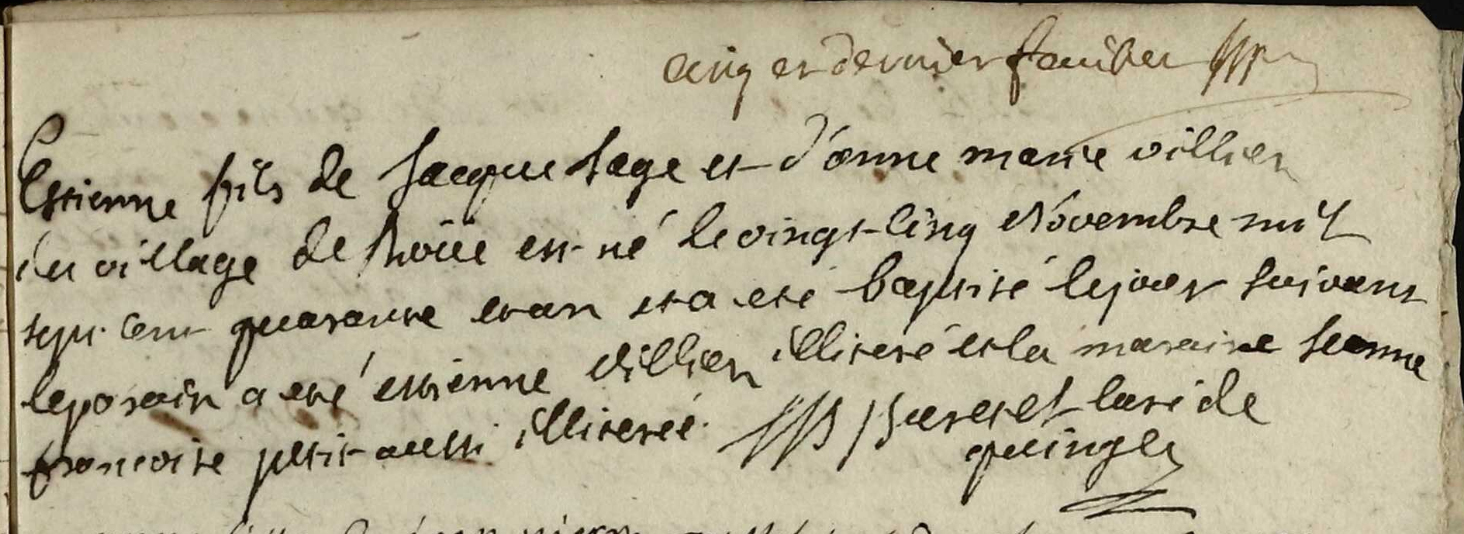 cinq et dernier feuillet
Estienne fils de Jacque Sage et d'anne marie villien
du village de est né le vingt-cinq Novembre mil
sept cent quarante et un et a eté baptisé le jour suivant
le parain a eté estienne villien illiteré et la maraine Jeanne
francoise petit aussi illiterée. curé de
quingey